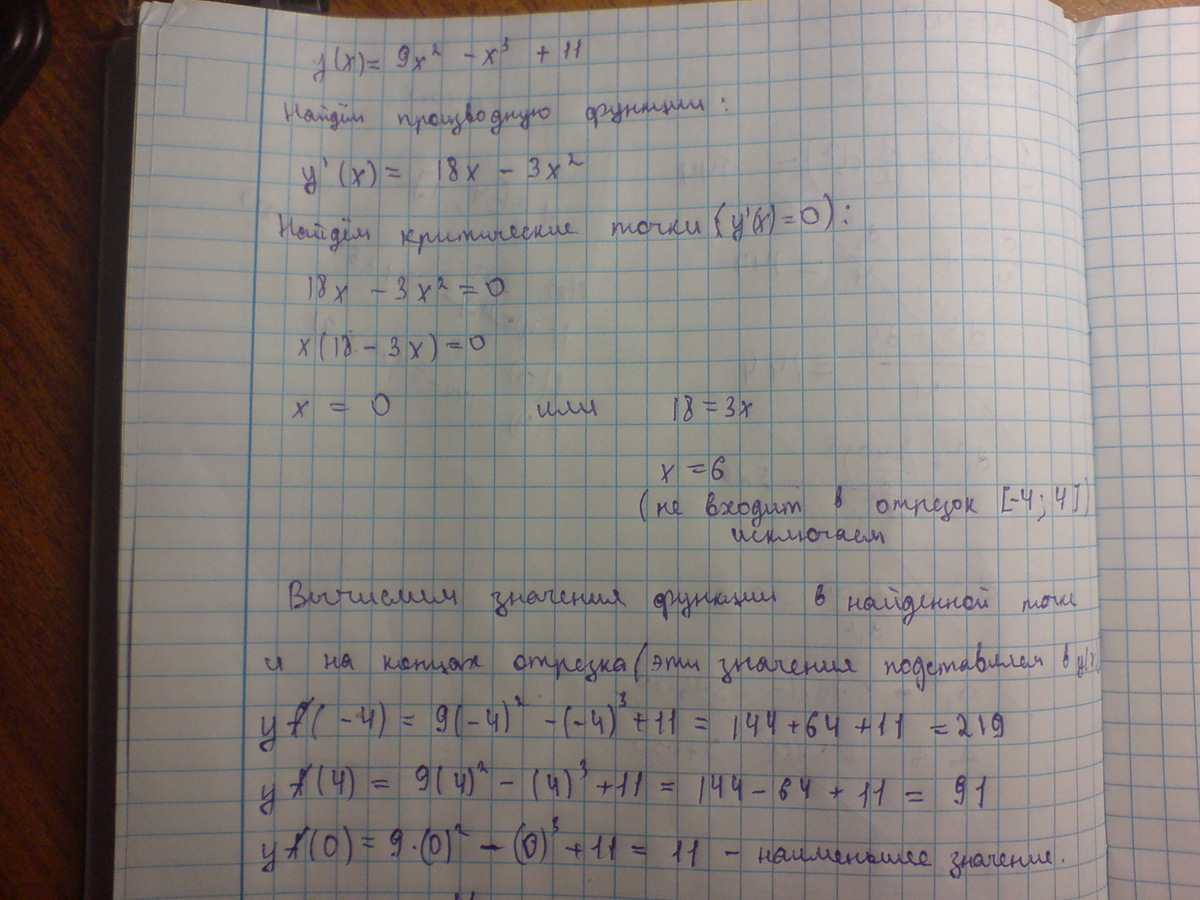 y(x) = 9x² - x³ + 11
Найдём производную функции:
y'(x) = 18x - 3x²
Найдём критические точки (y'(x) = 0):
18x - 3x² = 0
x(18 - 3x) = 0
x = 0 или 18 = 3x
x = 6
(не входит в отрезок [-4; 4])
исключаем
Вычислим значения функции в найденной точке
и на концах отрезка (эти значения подставляем в y(x)
y(-4) = 9(-4)² - (-4)³ + 11 = 144 + 64 + 11 = 219
y(4) = 9(4)² - (4)³ + 11 = 144 - 64 + 11 = 91
y(0) = 9·(0)² - (0)³ + 11 = 11 - наименьшее значение.